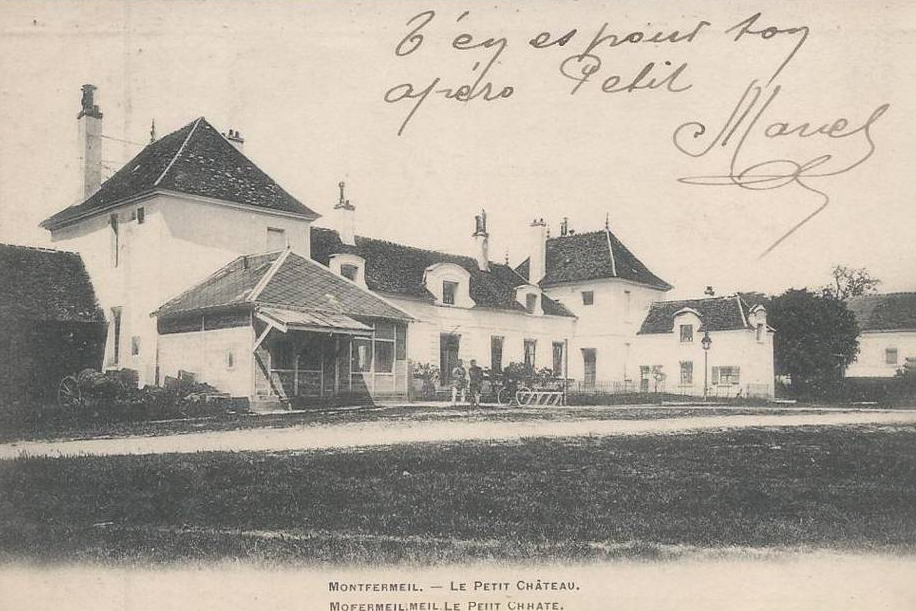 T'én es pour ton
apéro Petit
Marcel
MONTFERMEIL. — LE PETIT CHÂTEAU.
MOFERMEIL.MEIL.LE PEIIT CHHATE.